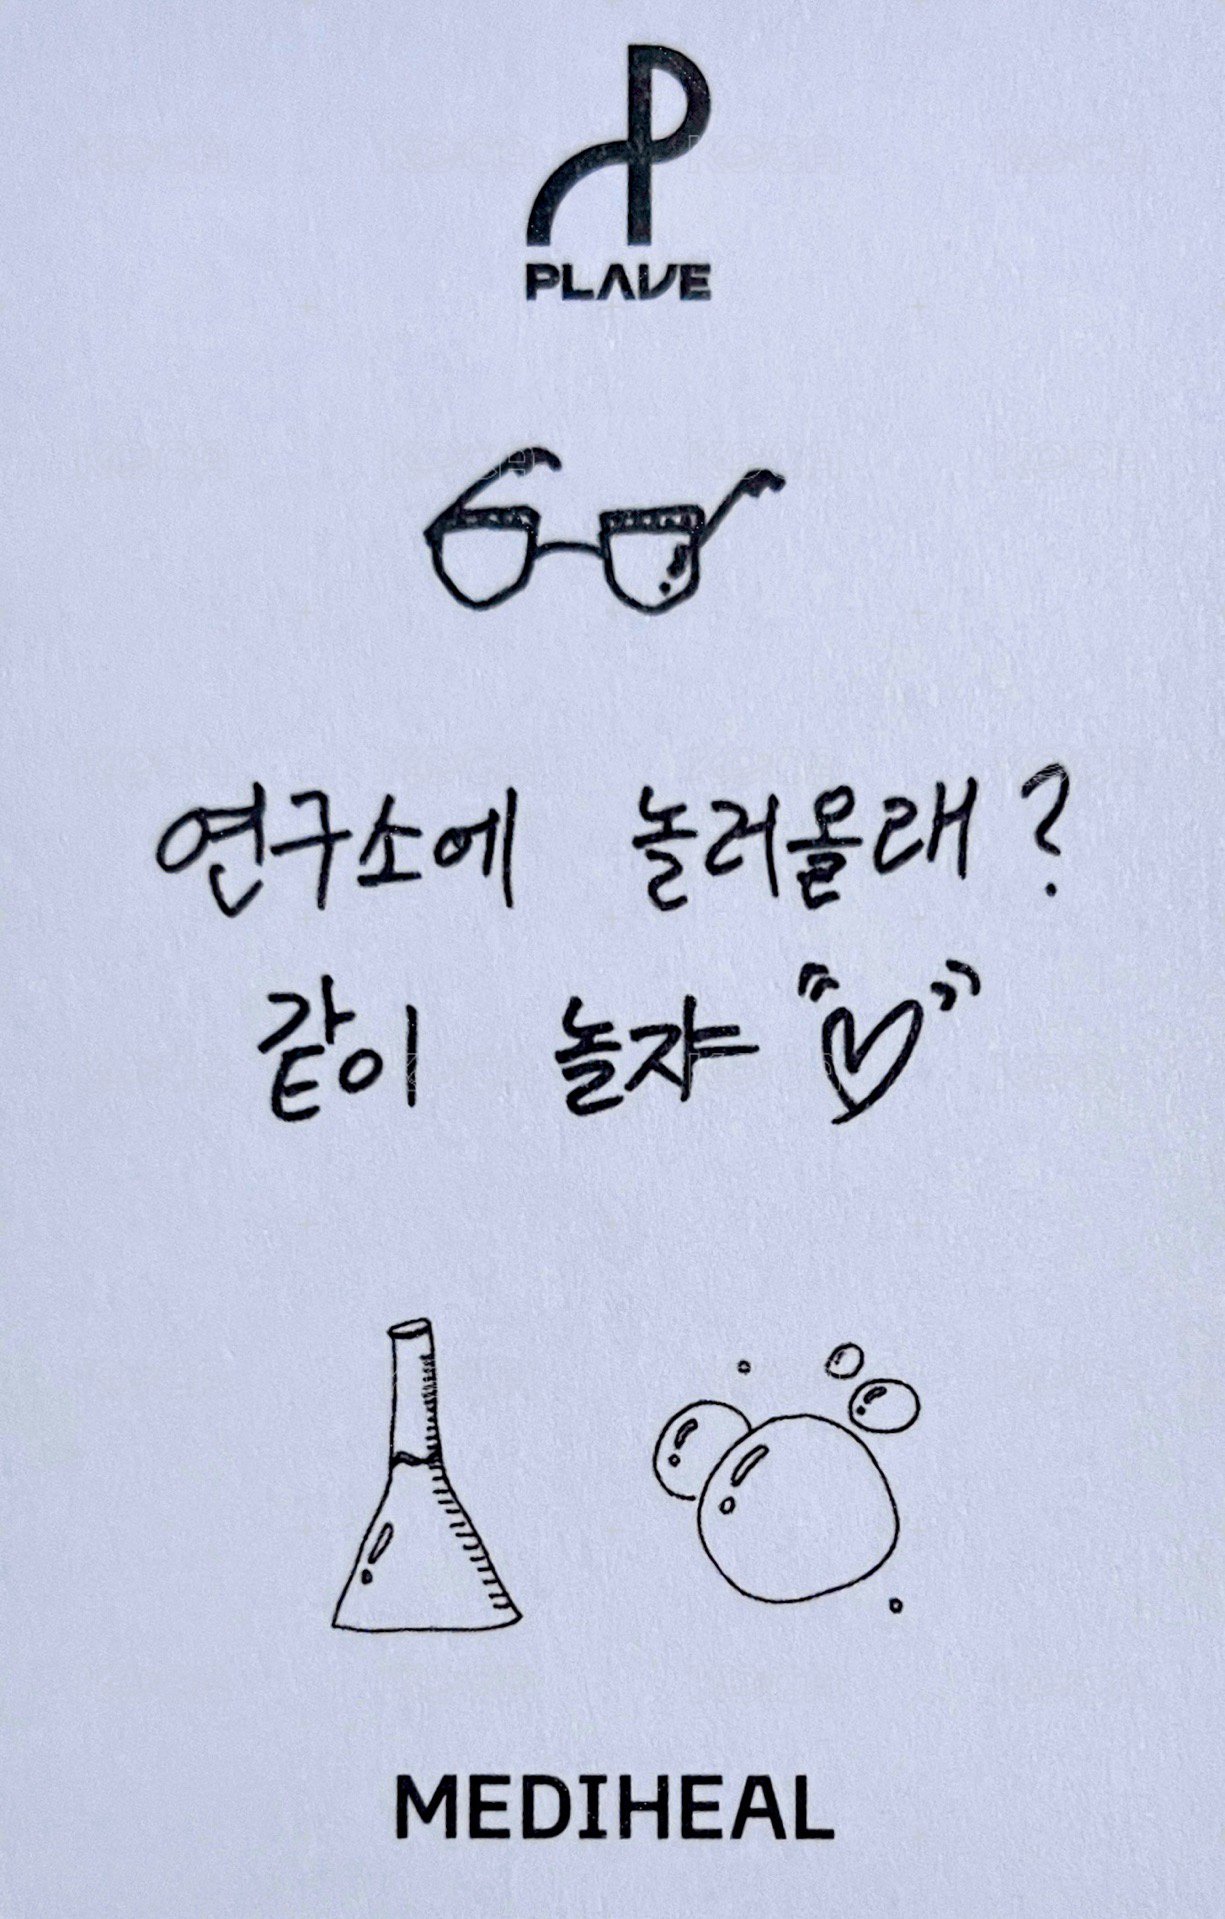 PLAVE
연구소에 놀러올래?
같이 놀쟈= ♡
MEDIHEAL